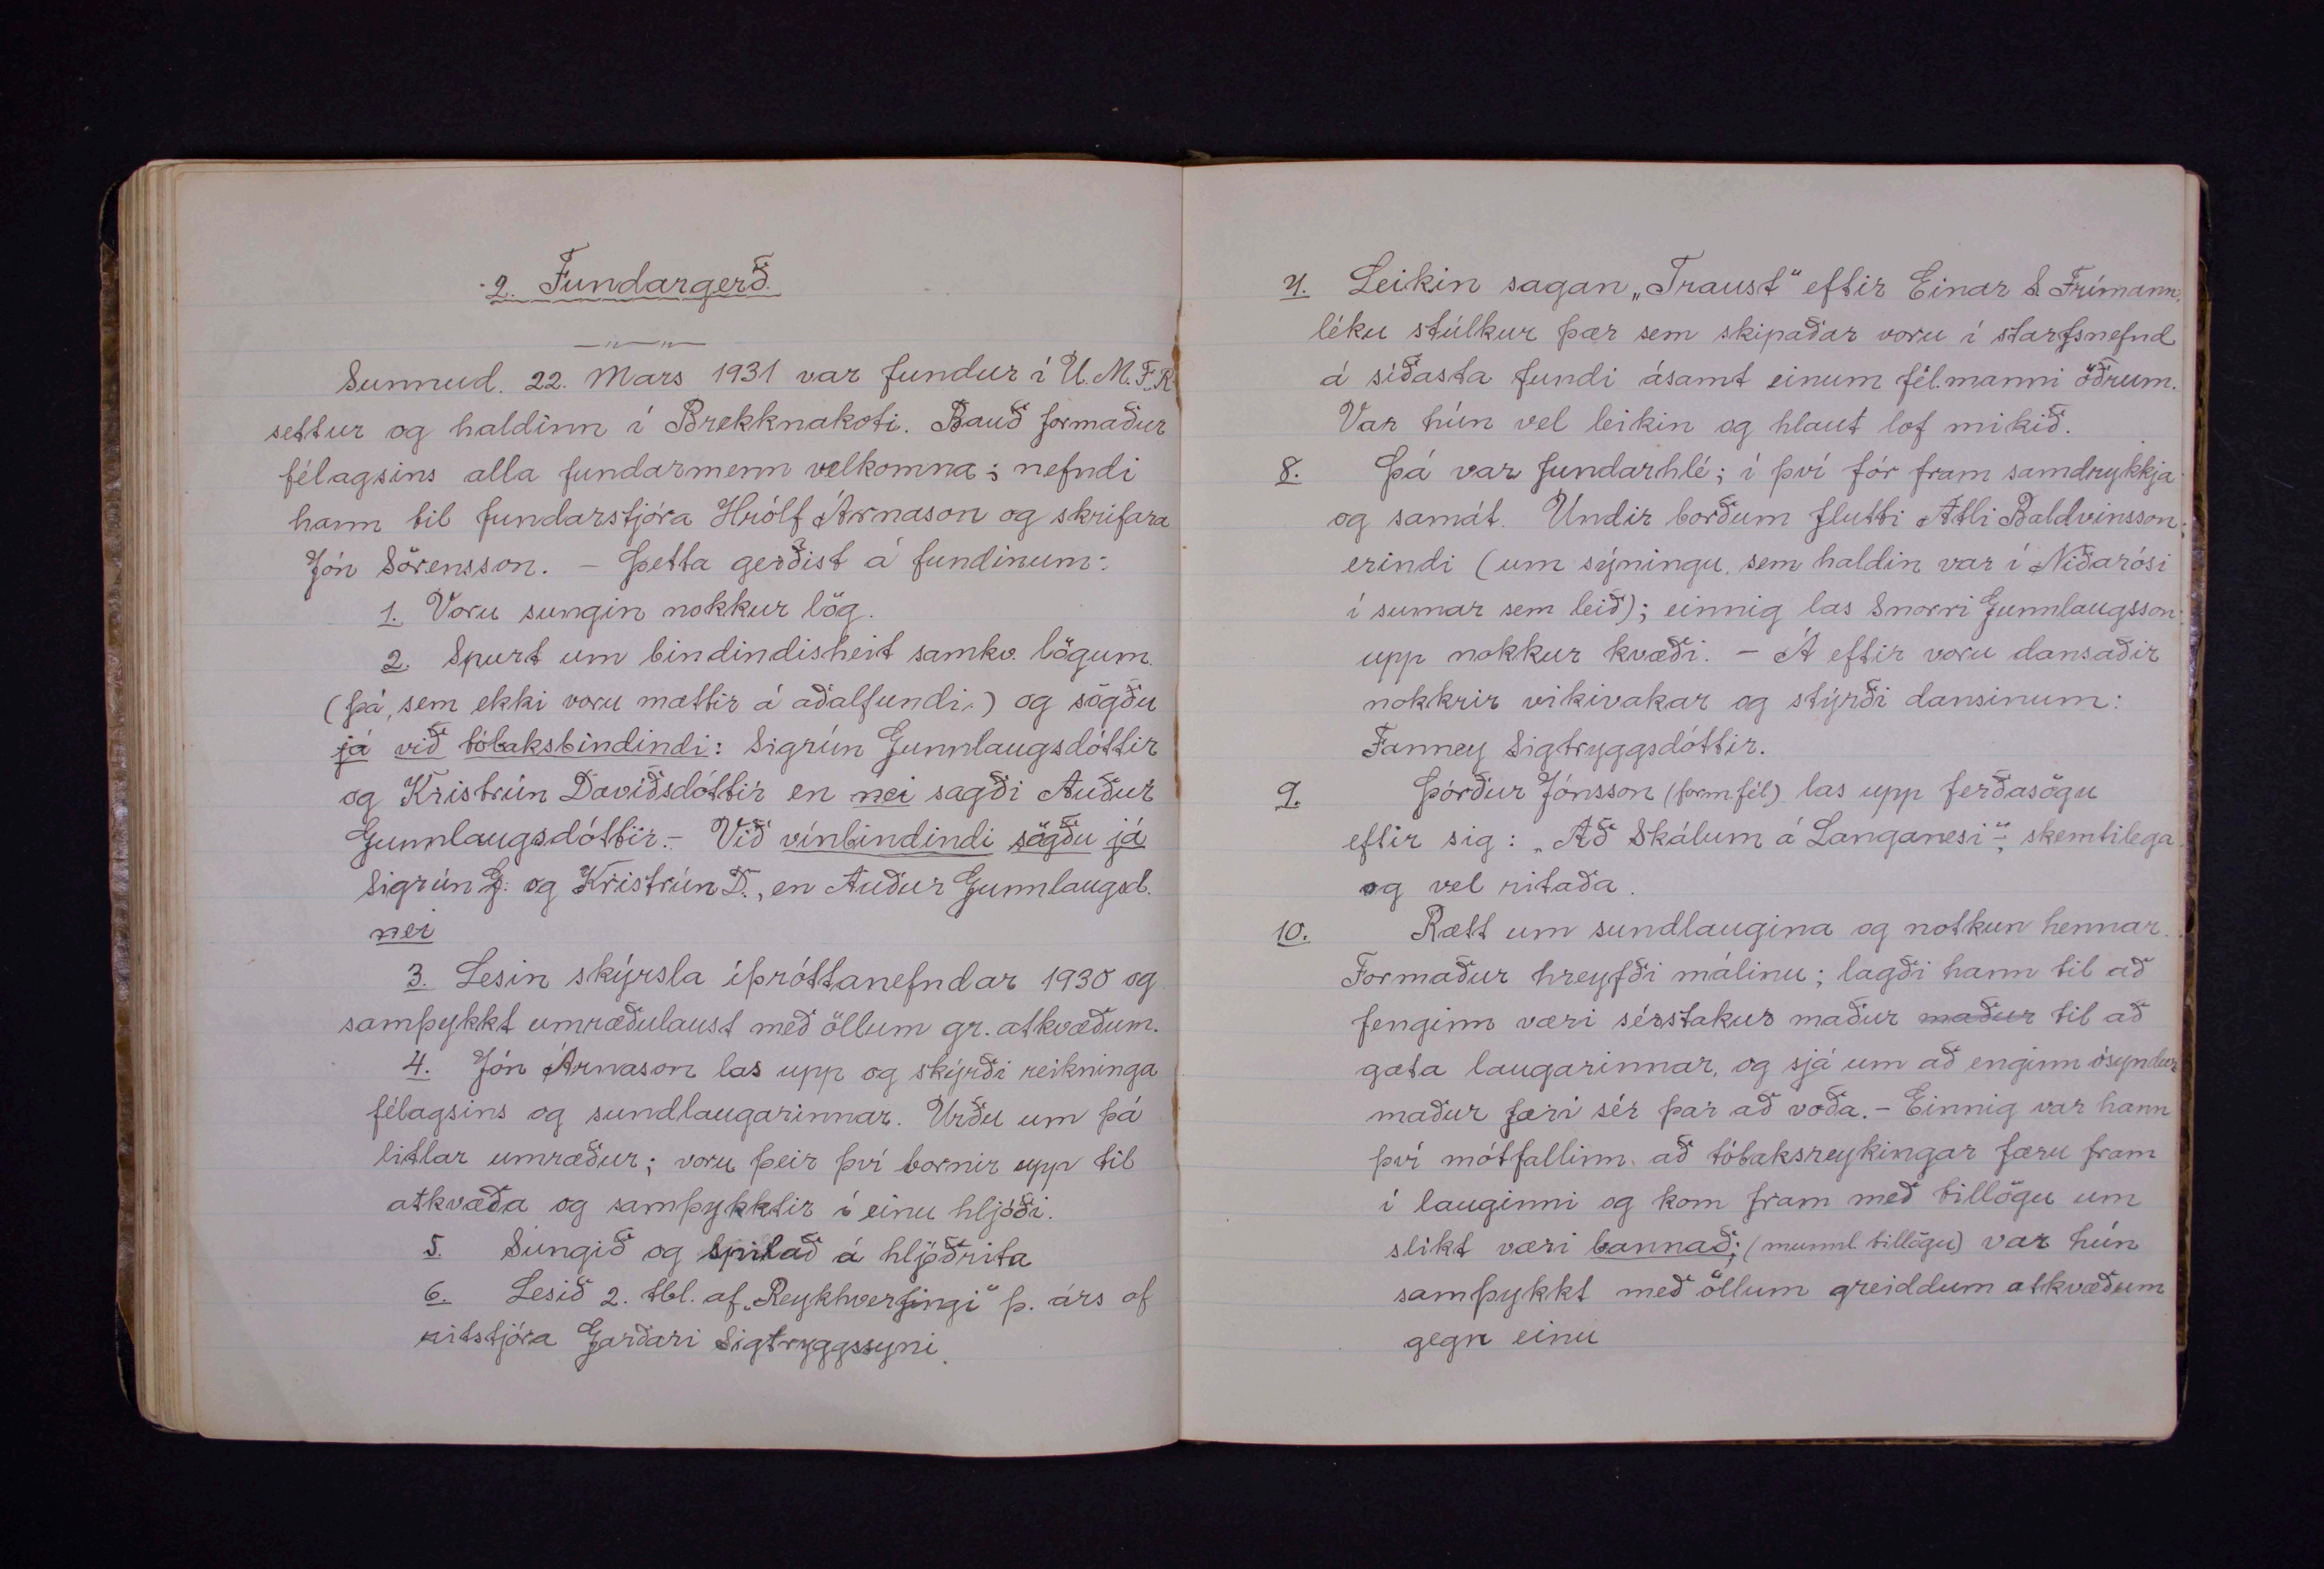 2. Fundargerð.
Sunnud. 22. Mars 1931 var fundur í U.M.F.R.
settur og haldinn í Brekknakoti. Bauð formaður
félagsins alla fundarmenn velkomna; nefndi
hann til fundarstjóra Hrólf Árnason og skrifara
Jón Sörensson. - Þetta gerðist á fundinum:
1. Voru sungin nokkur lög.
2. Spurt um bindindisheit samkv. lögum.
(þá, sem ekki voru mættir á aðalfundi.) og sögðu
já við tóbaksbindindi: Sigrún Gunnlaugsdóttir
og Kristrún Davíðsdóttir en nei sagði Auður
Gunnlaugsdóttir. - Við vínbindindi sögðu já
Sigrún G. og Kristrún D., en Auður Gunnlaugsd.
nei
3. Lesin skýrsla íþróttanefndar 1930 og
samþykkt umræðulaust með öllum gr. atkvæðum.
4. Jón Árnason las upp og skýrði reikninga
félagsins og sundlaugarinnar. Urðu um þá
litlar umræður; voru þeir því bornir upp til
atkvæða og samþykktir í einu hljóði.
5. Sungið og spilað á hljóðrita
6. Lesið 2. tbl. af „Reykhverfingi" þ. árs af
ritstjóra Garðari Sigtryggssyni.
7. Leikin sagan „Traust" eftir Einar S. Frímann,
léku stúlkur þær sem skipaðar voru í starfsnefnd
á síðasta fundi ásamt einum fél.manni öðrum.
Var hún vel leikin og hlaut lof mikið.
8. Þá var fundarhlé; í því fór fram samdrykkja
og samát. Undir borðum flutti Atli Baldvinsson
erindi (um sýningu, sem haldin var í Niðarósi
í sumar sem leið); einnig las Snorri Gunnlaugsson
upp nokkur kvæði. - Á eftir voru dansaðir
nokkrir vikivakar og stýrði dansinum:
Fanney Sigtryggsdóttir.
9. Þórður Jónsson (form.fél.) las upp ferðasögu
eftir sig: „Að Skálum á Langanesi"; skemtilega
og vel ritaða.
10. Rætt um sundlaugina og notkun hennar.
Formaður hreyfði málinu; lagði hann til að
fenginn væri sérstakur maður maður til að
gæta laugarinnar, og sjá um að enginn ósyndur
maður færi sér þar að voða. - Einnig var hann
því mótfallinn að tóbaksreykingar færu fram
í lauginni og kom fram með tillögu um
slíkt væri bannað; (munnl. tillögu) var hún
samþykkt með öllum greiddum atkvæðum
gegn einu